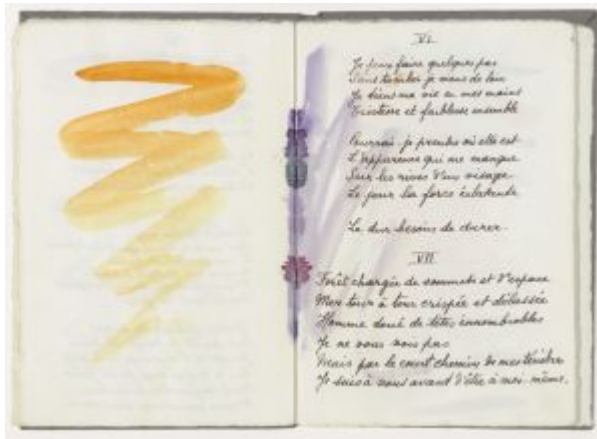 VI
Je peux faire quelques pas
Sans trembler je viens de loin
Je tiens ma vie en mes mains
Tristesse et faiblesse ensemble
Pourrai-je prendre où elle est
L'apparence qui me manque
Sur les rives d'un visage
Le jour la force éclatante
Le dur besoin de durer.
VII
Forêt chargée de sommets et d'espace
Mer tour à tour crispée et délassée
Homme doué de têtes innombrables
Je ne vous vois pas
Mais par le court chemin de mes ténèbres
Je suis à vous avant d'être à moi-même.